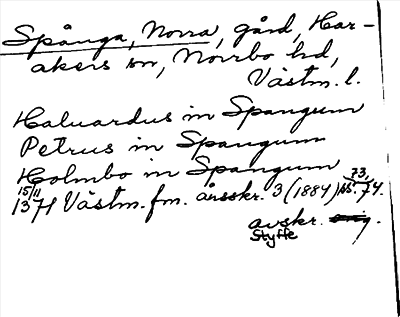 Spånga, Norra, gård, Har-
akers sn, Norrbo hd,
Västm. l.
Haluardus in Spangum
Petrus in Spangum
Holmbo in Spangum
15/11 1371 Västm. fm. årsskr. 3 (1884) ss. 73, 74.
avskr.
Styffe